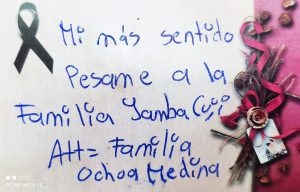 Mi más sentido
Pesame a la
Familia
Att= Familia
Ochoa Medina
REDMI NOTE 10